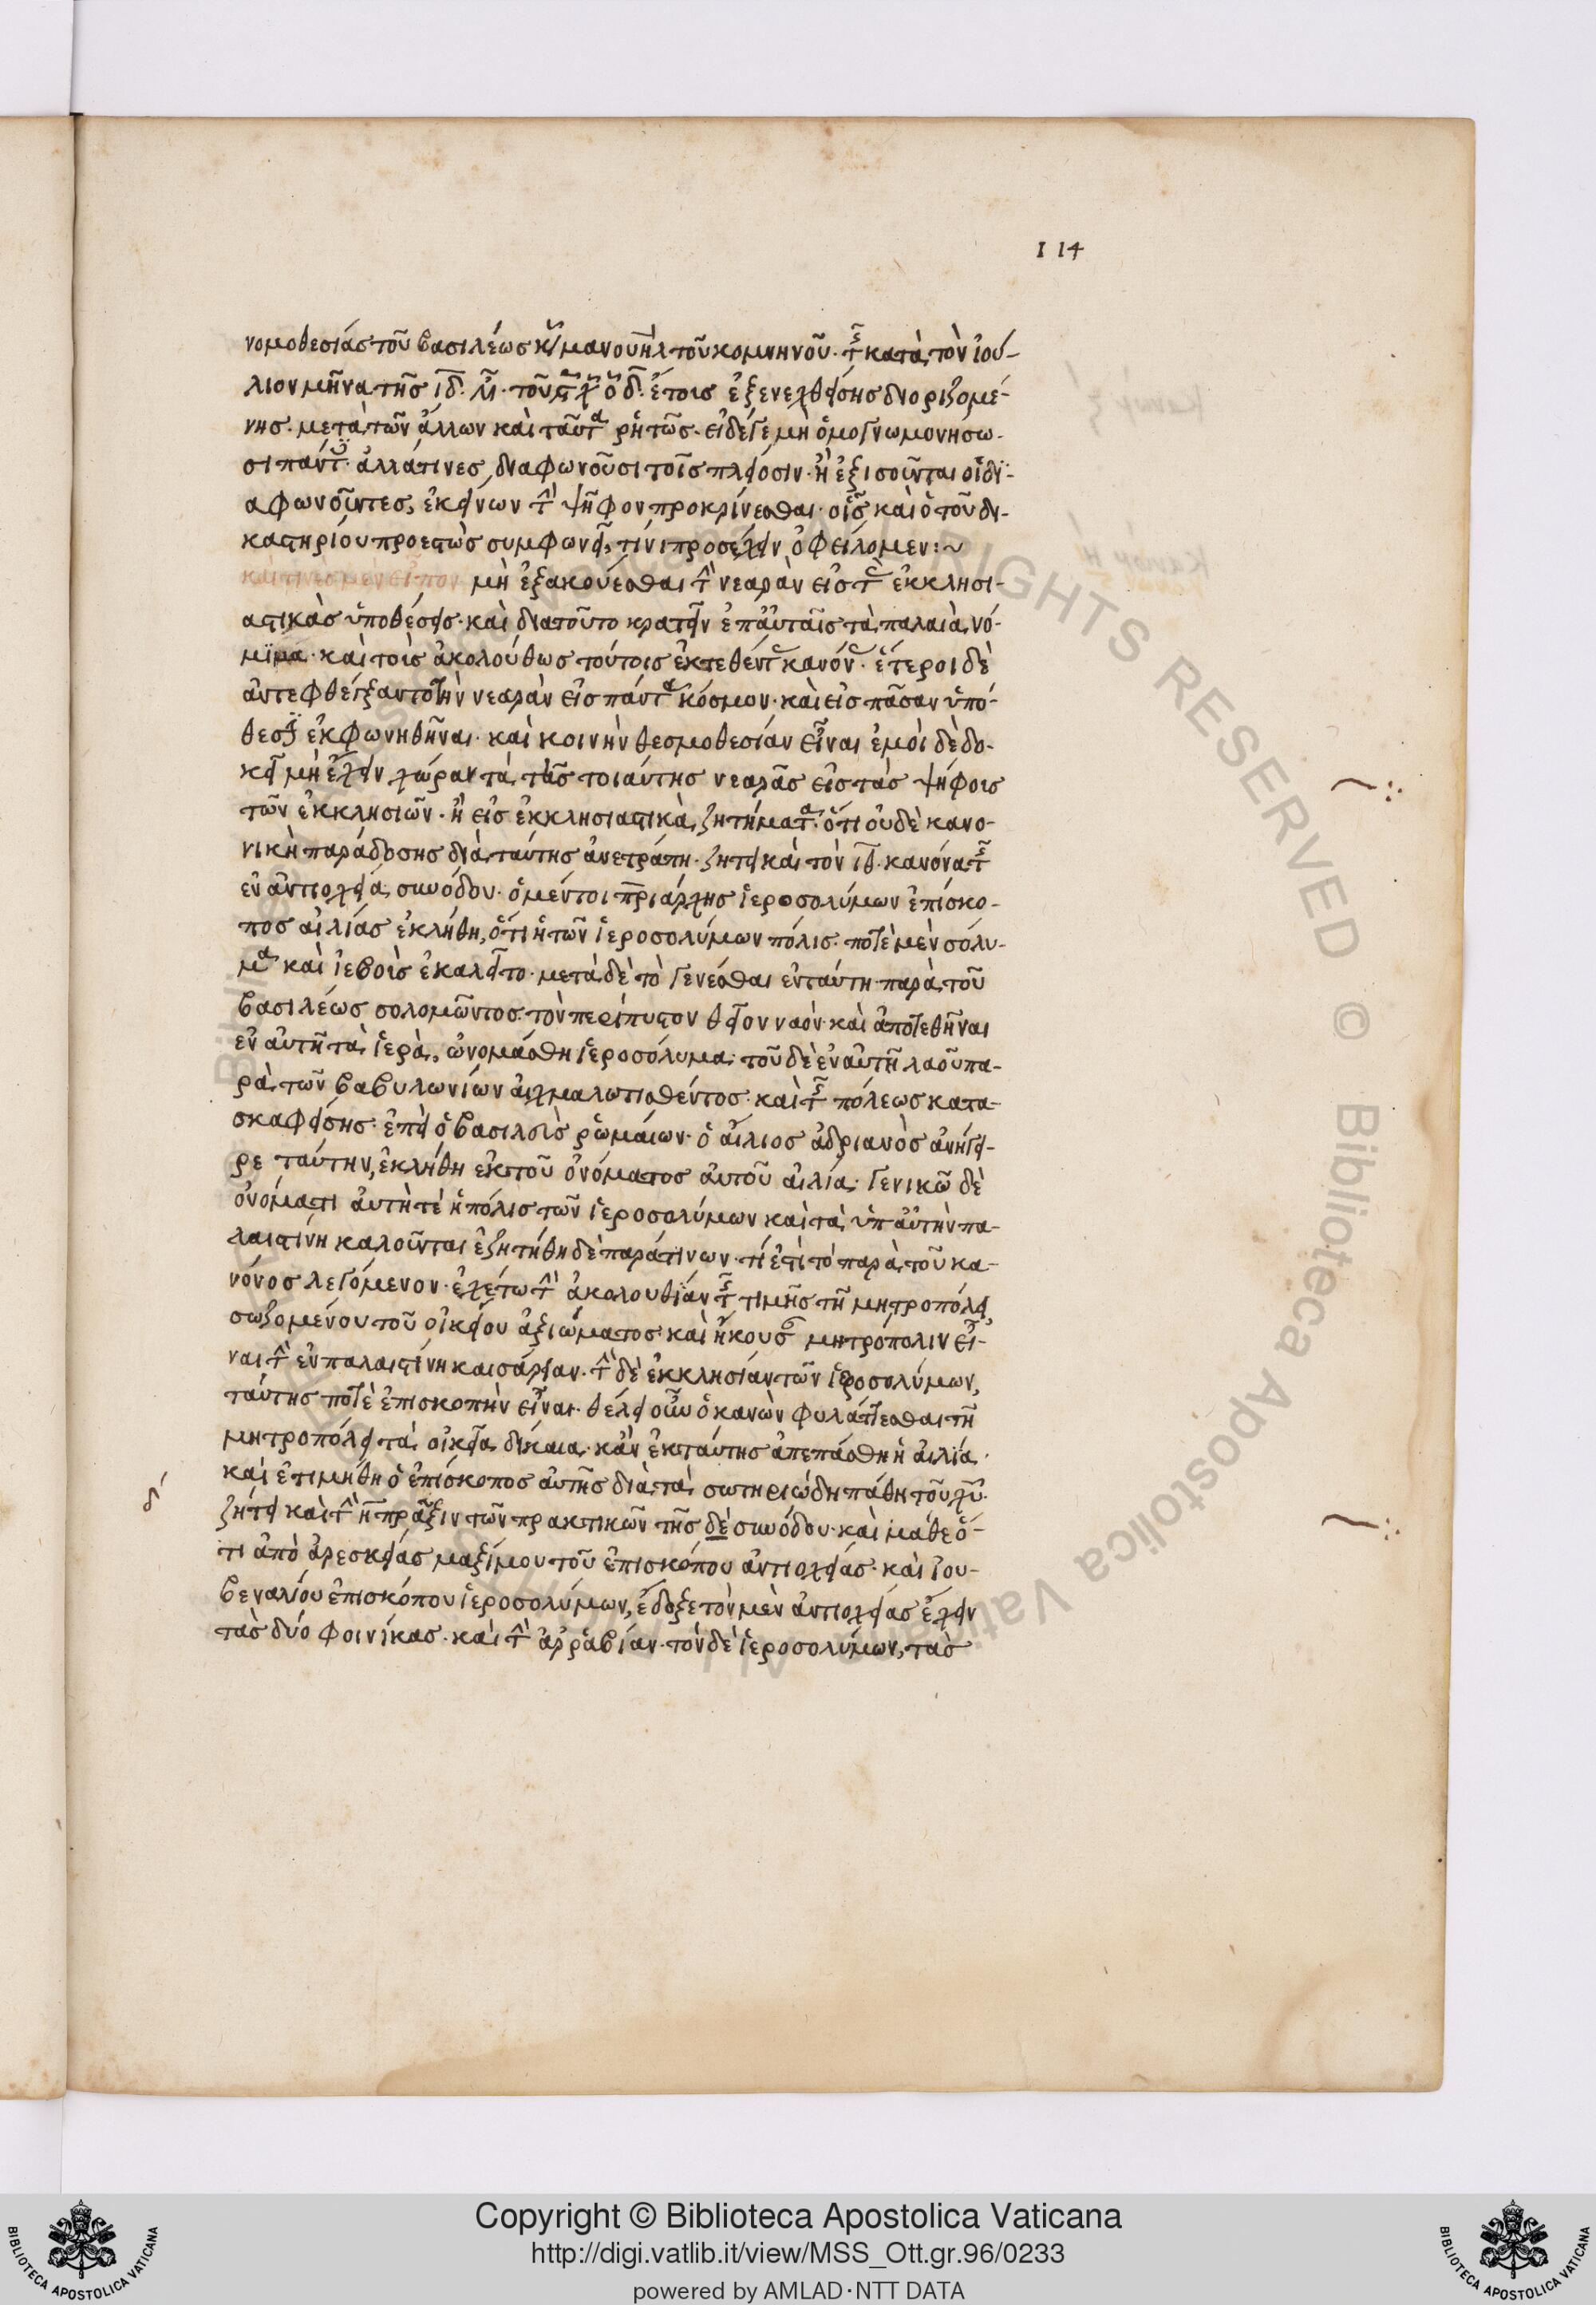 114
νομοθεσίας τοῦ βασιλέως κυ μανουὴλ τοῦ κομνηνοῦ· τῆς κατὰ τὸν ἰού-
λιον μῆνα τῆς ιδ ἔτους ἐξενεχθείσης διοριζομέ-
νης· μετὰ τῶν ἄλλων καὶ ταῦτα ῥητῶς· εἰ δέ γε μὴ ὁμογνωμονήσω-
σι πάντες· ἀλλά τινες διαφωνοῦσι τοῖς πλείοσιν· ἢ ἐξισοῦνται οἱ δι-
αφωνοῦντες, ἐκείνων τὴν ψῆφον προκρίνεσθαι· οἷς καὶ ὁ τοῦ δι-
καστηρίου προεστὼς συμφωνεῖ, τίνι προσέχειν ὀφείλομεν:~
καὶ τινὲς μὲν εἶπον μὴ ἐξακούεσθαι τὴν νεαρὰν εἰς τὰς ἐκκλησι-
αστικὰς ὑποθέσεις· καὶ διατοῦτο κρατεῖν ἐπ' αὐταῖς τὰ παλαιὰ νό-
μιμα· καὶ τοῖς ἀκολούθως τούτοις ἐκτεθέντας κανόνας· ἕτεροι δὲ
ἀντεφθέγξαντο τὴν νεαρὰν εἰς πάντα κόσμον· καὶ εἰς πᾶσαν ὑπό-
θεσιν ἐκφωνηθῆναι· καὶ κοινὴν θεσμοθεσίαν εἶναι ἐμοὶ δὲ δο-
κεῖ μὴ ἔχειν χώραν τὰ τῆς τοιαύτης νεαρᾶς εἰς τὰς ψήφοις
τῶν ἐκκλησιῶν· ἢ εἰς ἐκκλησιαστικὰ ζητήματα· ὅτι οὐδὲ κανο-
νικὴ παράδοσης διὰ ταύτης ἀνετράπη· ζήτει καὶ τὸν ιθ· κανόνα τῆς
ἐν ἀντιοχείᾳ συνόδου· ὁ μέντοι πριάρχης ἱεροσολύμων ἐπίσκο-
πος αἰλίας ἐκλήθη, ὅτι ἡ τῶν ἱεροσολύμων πόλις· ποτὲ μὲν σόλυ-
μα καὶ ἰεβοὺς ἐκαλεῖτο· μετὰ δὲ τὸ γενέσθαι ἐν ταύτη παρὰ τοῦ
βασιλέως σολομῶντος· τὸν περίπυστον θεῖον ναόν· καὶ ἀποτεθῆναι
ἐν αὐτῆ τὰ ἱερὰ, ὠνομάσθη ἱεροσόλυμα· τοῦ δὲ ἐν αὐτῆ λαοῦ πα-
ρὰ τῶν βαβυλωνίων αἰχμαλωτισθέντος· καὶ τῆς πόλεως κατα-
σκαφείσης· ἐπεὶ ὁ βασιλεὺς ῥωμαίων· ὁ αἴλιος ἀδριανὸς ἀνήγει-
ρε ταύτην, ἐκλήθη ἐκ τοῦ ὀνόματος αὐτοῦ αἰλία· γενικῶ δὲ
ὀνόματι αὐτή τε ἡ πόλις τῶν ἱεροσολύμων καὶ τὰ ὑπ' αὐτὴν πα-
λαιστίνη καλοῦνται ἐζητήθη δὲ παράτινων· τί ἐστὶ τὸ παρὰ τοῦ κα-
νόνος λεγόμενον· ἐχέτω τὴν ἀκολουθίαν τῆς τιμῆς τῆ μητροπόλει
σωζομένου τοῦ οἰκείου ἀξιώματος· καὶ ἤκουσαν μητρόπολιν εἶ-
ναι τὴν ἐν παλαιστίνη καισάρειαν· τὴν δὲ ἐκκλησίαν τῶν ἱεροσολύμων,
ταύτης ποτὲ ἐπισκοπὴν εἶναι· θέλει οὖν ὁ κανὼν φυλάττεσθαι τῆ
μητροπόλει τὰ οἰκεῖα δίκαια· κἂν ἐκ ταύτης ἀπεσπάσθη ἡ αἰλία·
καὶ ἐτιμήθη ὁ ἐπίσκοπος αὐτῆς διὰ τὰ σωτηριώδη πάθη τοῦ χυ·
ζήτει καὶ τὴν η πρᾶξιν τῶν πρακτικῶν τῆς δὲ συνόδου· καὶ μάθε ὅ-
τι ἀπὸ ἀρεσκείας μαξίμου τοῦ ἐπισκόπου ἀντιοχείας· καὶ ἰου-
βεναλίου ἐπισκόπου ἱεροσολύμων, ἔδοξε τὸν μὲν ἀντιοχείας ἔχειν
τὰς δύο φοινίκας· καὶ τὴν ἀρραβίαν· τὸν δὲ ἱεροσολύμων, τὰς
RIGHTS RESERVED © Biblioteca Apostolica Vaticana
Copyright © Biblioteca Apostolica Vaticana
http://digi.vatlib.it/view/MSS_Ott.gr.96/0233
powered by AMLAD·NTT DATA
BIBLIOTECA APOSTOLICA VATICANA
BIBLIOTECA APOSTOLICA VATICANA